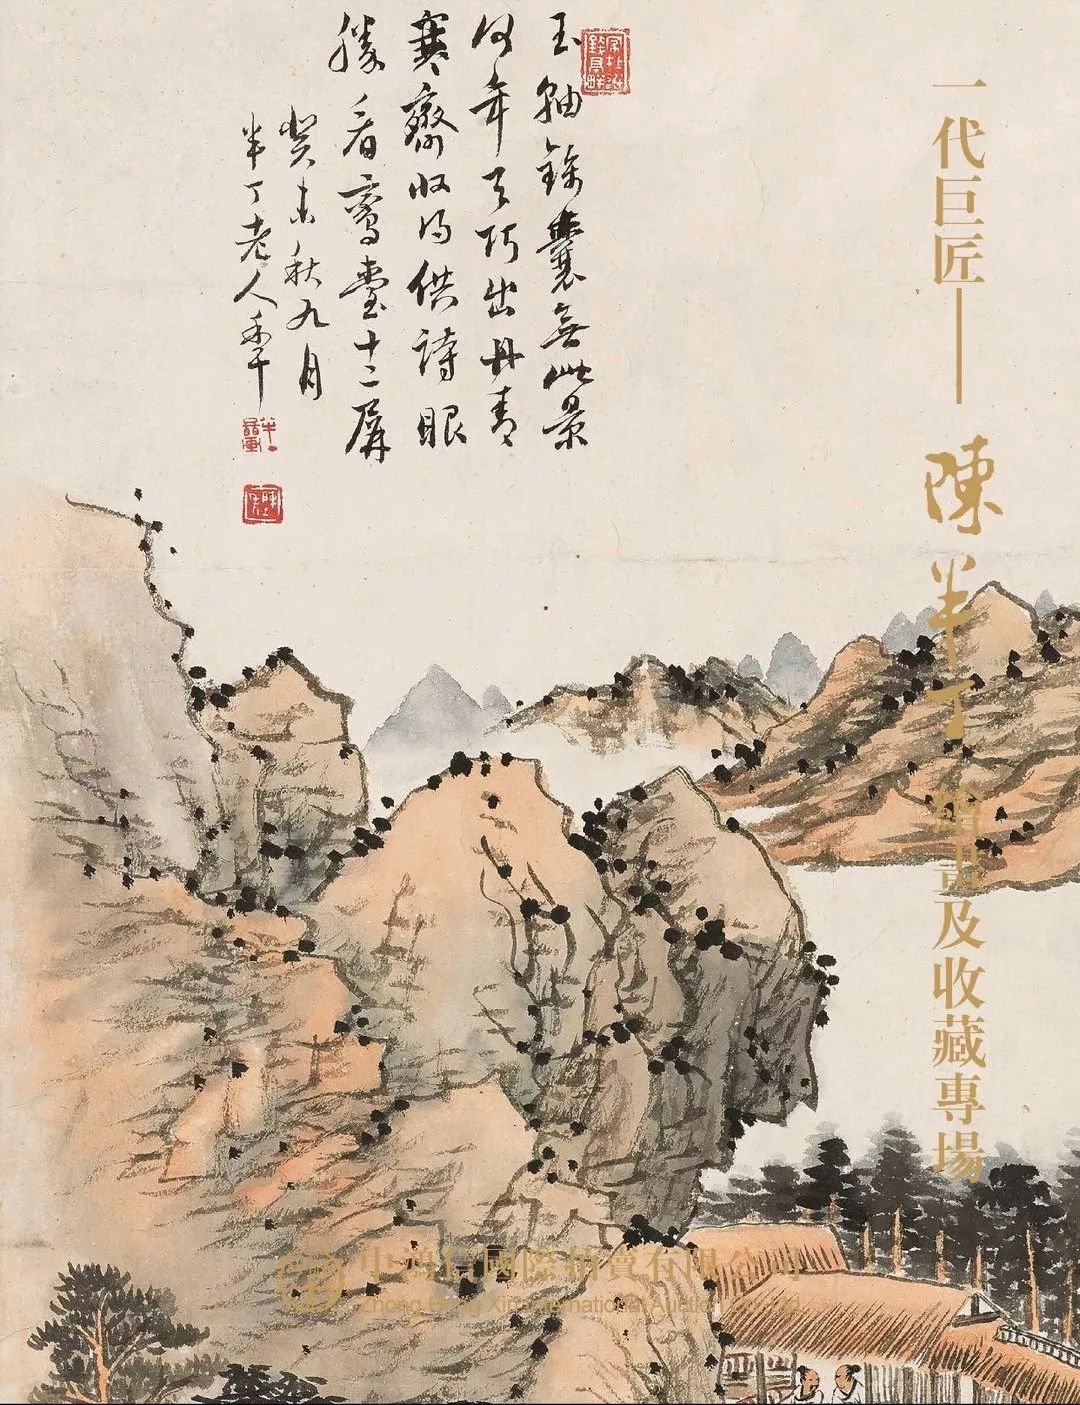 玉軸錦囊無此景
何年天巧出丹青
寒齋收得供詩眼
勝看鸞臺十二屏
癸未秋九月
半丁老人年
一代巨匠——陳半丁繪畫及收藏專場
中鴻信國際拍賣有限公司
Zhong Hong Xin International Auction